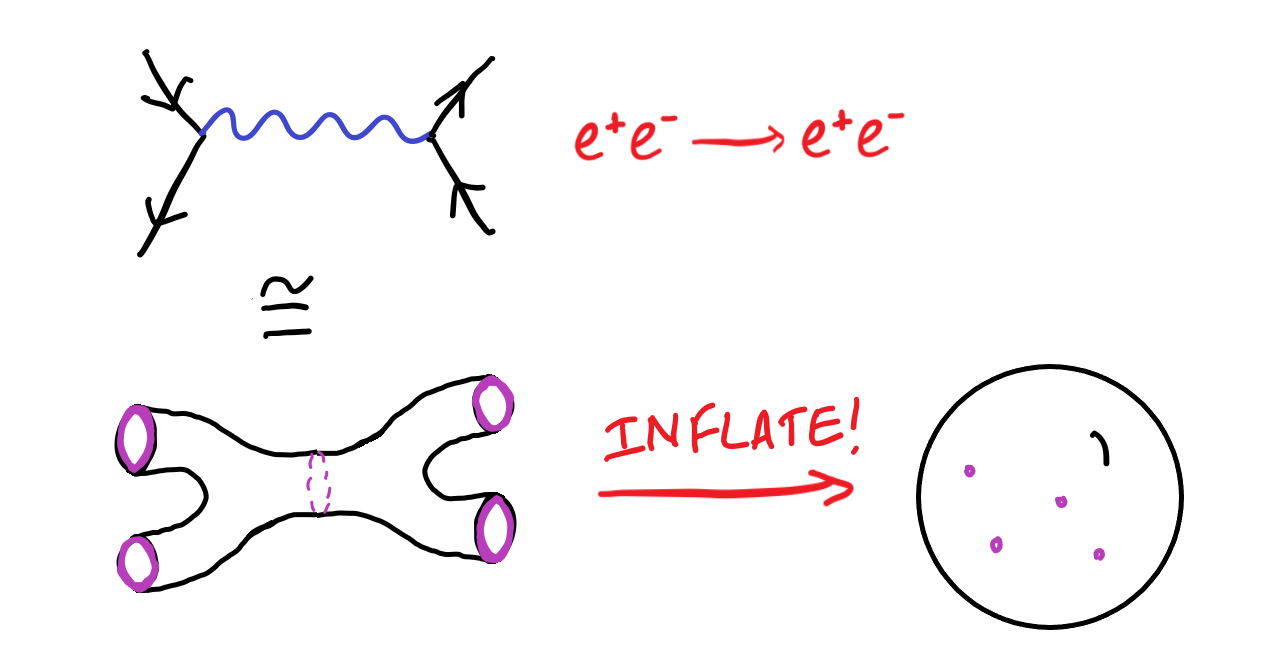 e⁺e⁻ → e⁺e⁻
≅
INFLATE!